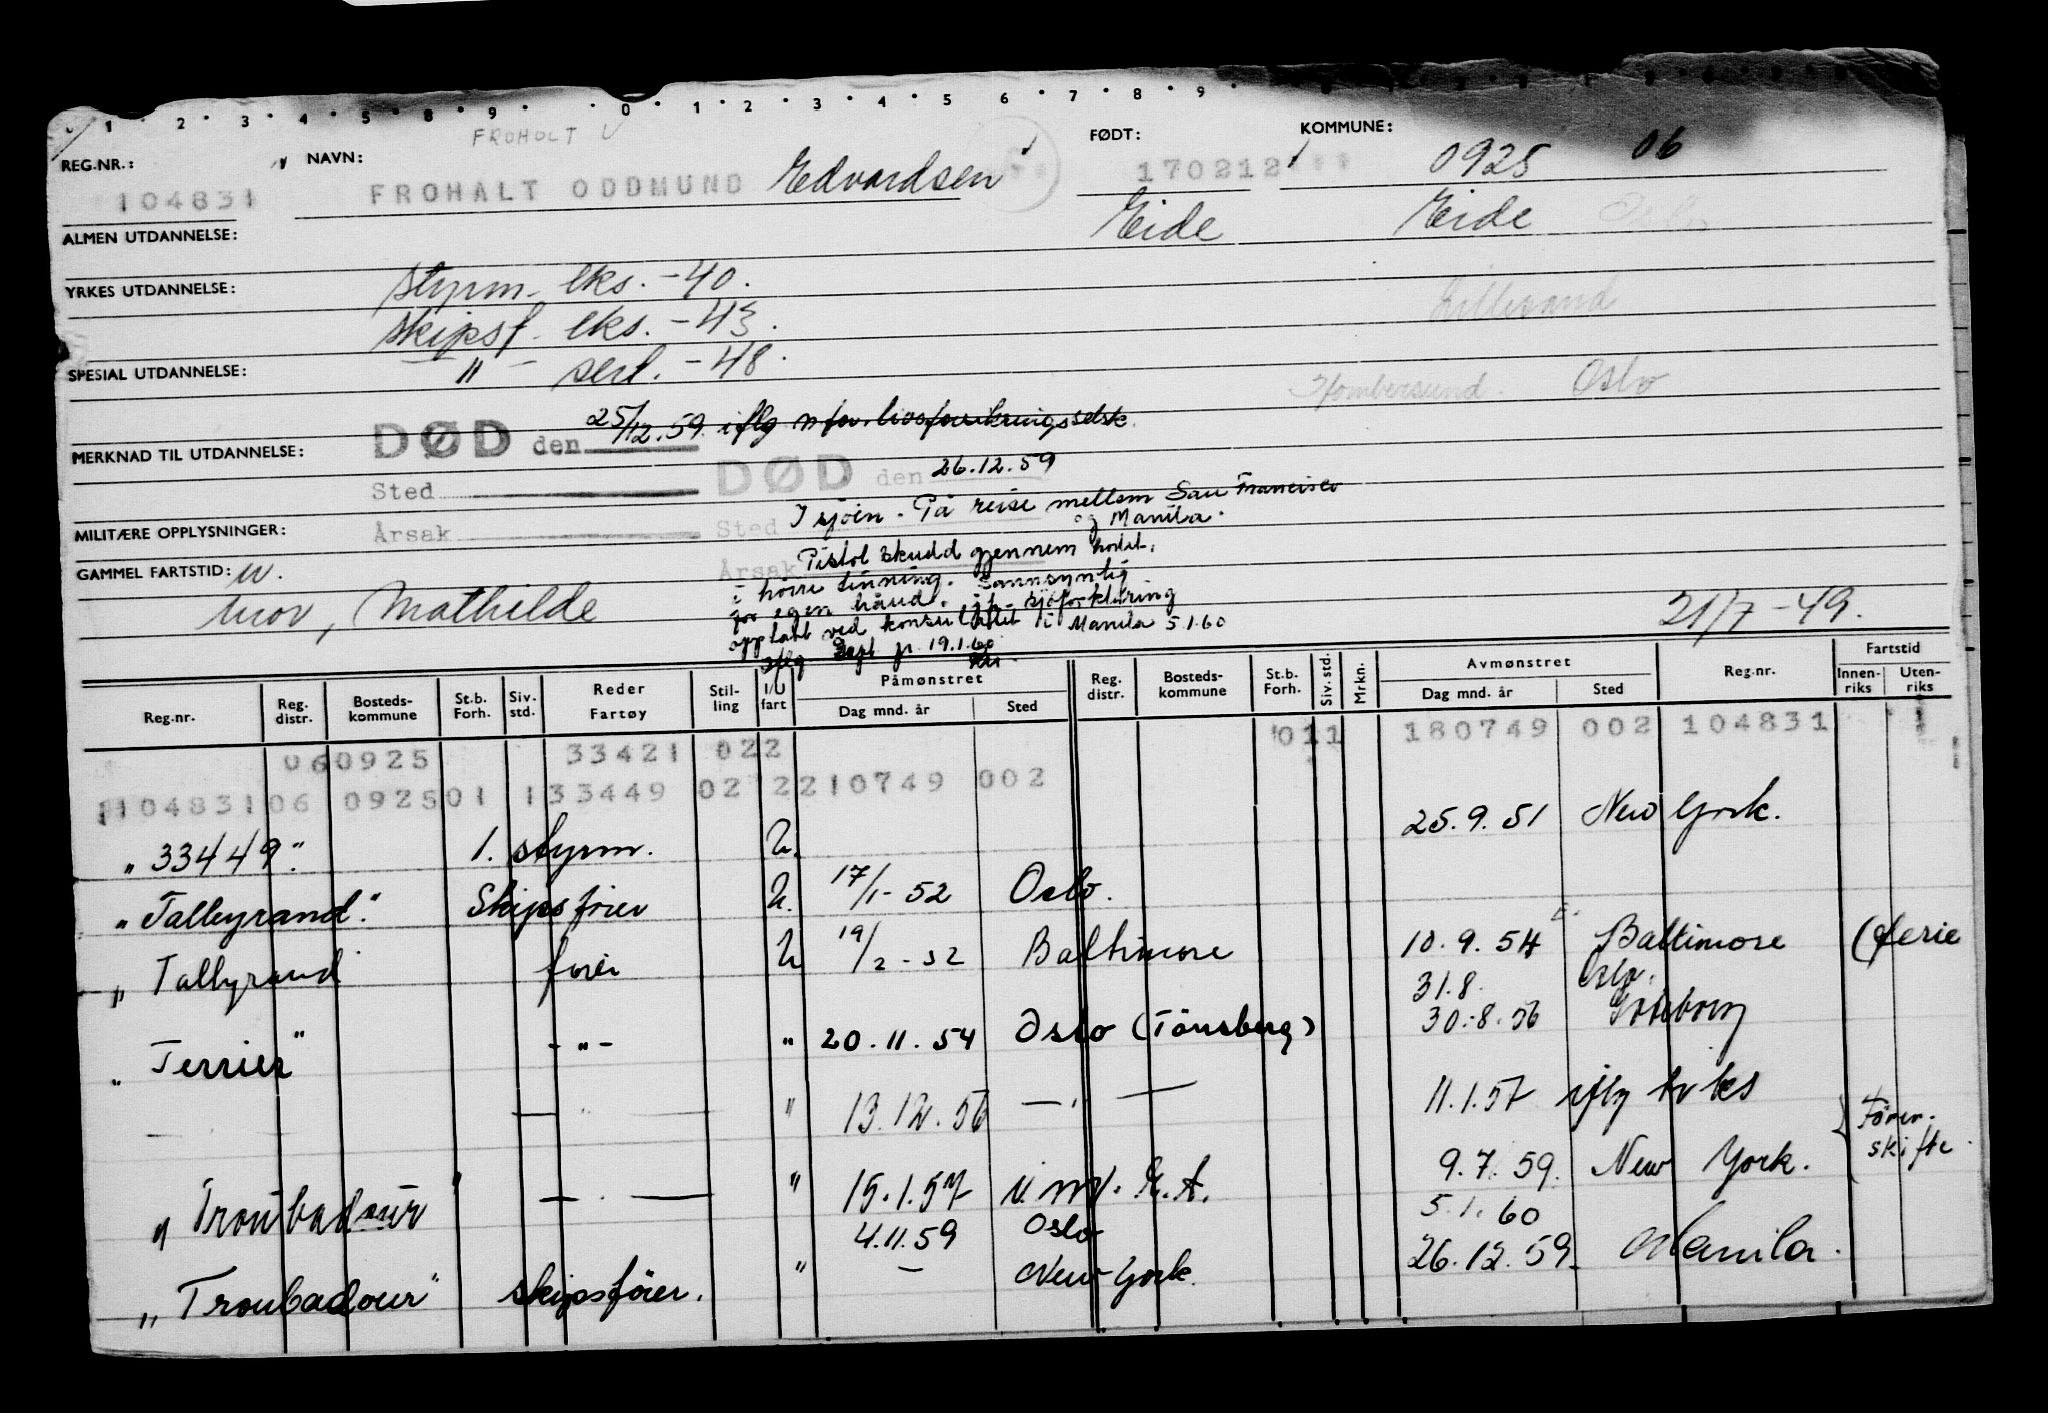 1 2 3 4 5 8 9 0 1 2 3 4 5 6 7 8 9
FROHOLT
REG.NR.: NAVN: FØDT: KOMMUNE:
104831 FROHALT ODDMUND Edvardsen 170212 0925 06
ALMEN UTDANNELSE: Eide Eide Oslo
YRKES UTDANNELSE: styrm. eks. -40. Lillesand
skipsf. eks. -43.
SPESIAL UTDANNELSE: " - sert. -48.
Hombersund. Oslo
DØD den 25/12.59. iflg livsforsikringsselsk.
MERKNAD TIL UTDANNELSE:
DØD den 26.12.59
Sted
Sted I sjøen. På reise mellem San Francisco
og Manila.
MILITÆRE OPPLYSNINGER: Årsak
Årsak Pistol skudd gjennem hodet,
GAMMEL FARTSTID: u.
i høire tinning. Sannsynlig
for egen hånd. sjøforklaring
mor, Mathilde
opptatt ved konsulatet i Manila 5.1.60
21/7-49.
iflg 19.1.60
Reg.nr. Reg. distr. Bosteds-kommune St.b. Forh. Siv. std. Reder Fartøy Stil-ling I/U fart Påmønstret Dag mnd. år Sted Reg. distr. Bosteds-kommune St.b. Forh. Siv. std. Mrkn. Avmønstret Dag mnd. år Sted Reg.nr. Fartstid Innen-riks Uten-riks
060925 33421 022 011 180749 002 104831
110483106 092501 133449 02 2210749 002
"33449". 1. styrm. U. 25.9.51 New York.
"Talleyrand". Skipsfører U. 17/1-52 Oslo.
" Tallyrand fører U 19/2-52 Baltimore 10.9.54 Baltimore (ferie
31.8. Oslo.
" Terrier" -"- " 20.11.54 Oslo (Tønsberg) 30.8.56 Göteborg
— " — " 13.12.56 — " — 11.1.57 iflg
" Troubadour" — . — " 15.1.57 9.7.59. New York. Fører-skifte.
4.11.59 Oslo 5.1.60
" Troubadour" skipsfører. " — New York. 26.12.59. Manila.